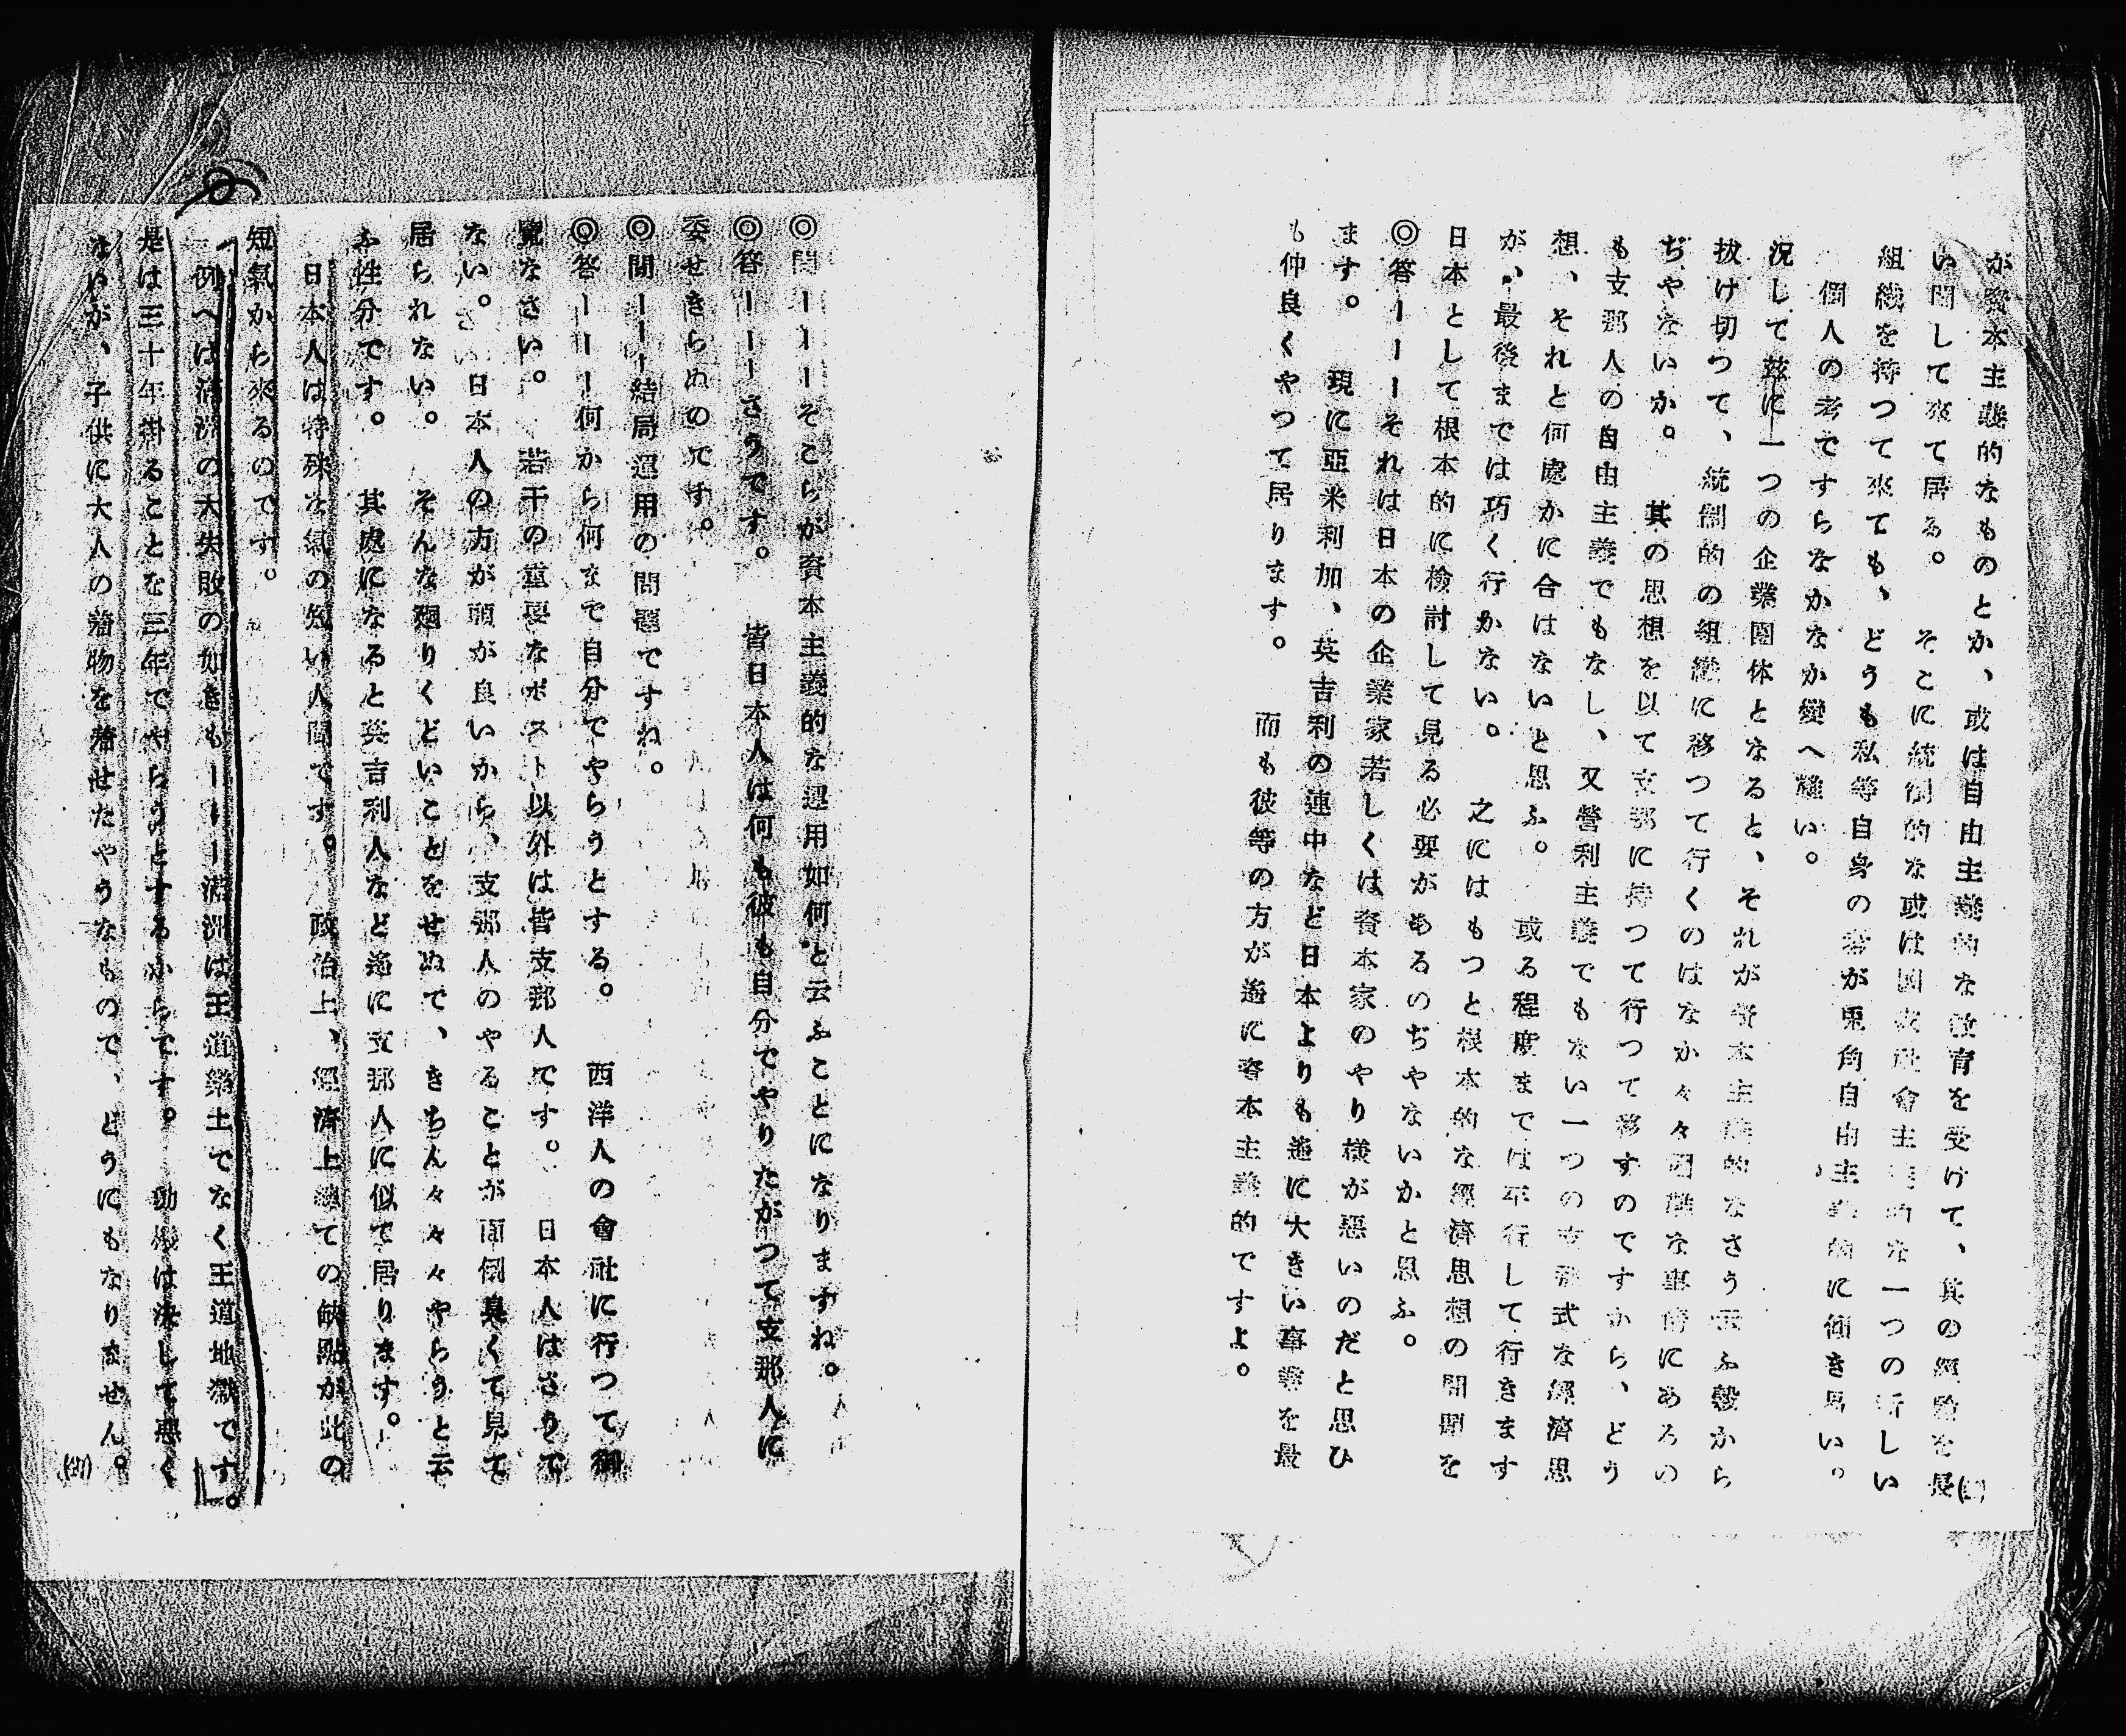 が資本主義的なものとか、或は自由主義的な敎育を受けて、其の經驗を長
い間して來て居る。 そこに統制的な或は國家社會主義的な一つの新しい
組織を持つて來ても、どうも私等自身の考が兎角自由主義的に傾き易い。
個人の考ですらなかなか變へ難い。
況して玆に一つの企業團体となると、それが資本主義的なさう云ふ殼から
拔け切つて、統制的の組織に移つて行くのはなか々々困難な事情にあるの
ぢやないか。 其の思想を以て支那に持つて行つて移すのですから、どう
も支那人の自由主義でもなし、又營利主義でもない一つの支那式な經濟思
想、それと何處かに合はないと思ふ。 或る程度までは平行して行きます
が、最後までは巧く行かない。 之にはもつと根本的な經濟思想の開闢を
日本として根本的に檢討して見る必要があるのぢやないかと思ふ。
◎答ーーーそれは日本の企業家若しくは資本家のやり樣が惡いのだと思ひ
ます。 現に亞米利加、英吉利の連中など日本よりも遙に大きい事業を最
も仲良くやつて居ります。 而も彼等の方が遙に資本主義的ですよ。
◎問ーーーそこらが資本主義的な運用如何と云ふことになりますね。
◎答ーーーさうです。 皆日本人は何も彼も自分でやりたがつて支那人に
委せきらぬのです。
◎問ーーー結局運用の問題ですね。
◎答ーーー何から何まで自分でやらうとする。 西洋人の會社に行つて御
覽なさい。 若干の重要なポスト以外は皆支那人です。 日本人はさうで
ない。 日本人の方が頭が良いから、支那人のやることが面倒臭くて見て
居られない。 そんな廻りくどいことをせぬで、きちん々々々やらうと云
ふ性分です。 其處になると英吉利人など遙に支那人に似て居ります。
日本人は特殊な氣の短い人間です。 政治上、經濟上總ての缺點が此の
短氣から來るのです。
例へば滿洲の大失敗の如きもーーー滿洲は王道樂土でなく王道地獄です。
是は三十年掛ることを三年でやらうとするからです。 動機は決して惡く
ないが、子供に大人の着物を着せたやうなもので、どうにもなりません。